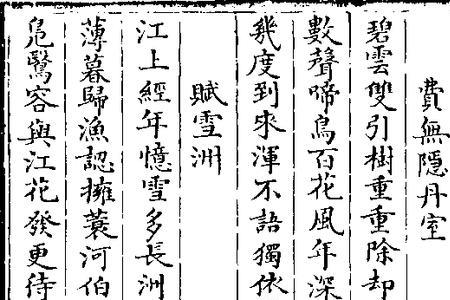 費無隱丹室
碧雲雙引樹重重除却
數聲啼鳥百花風年深
幾度到來渾不語獨依
賦雪洲
江上經年憶雪多長洲
薄暮歸漁認擁蓑河伯
鳧鷖容與江花發更待